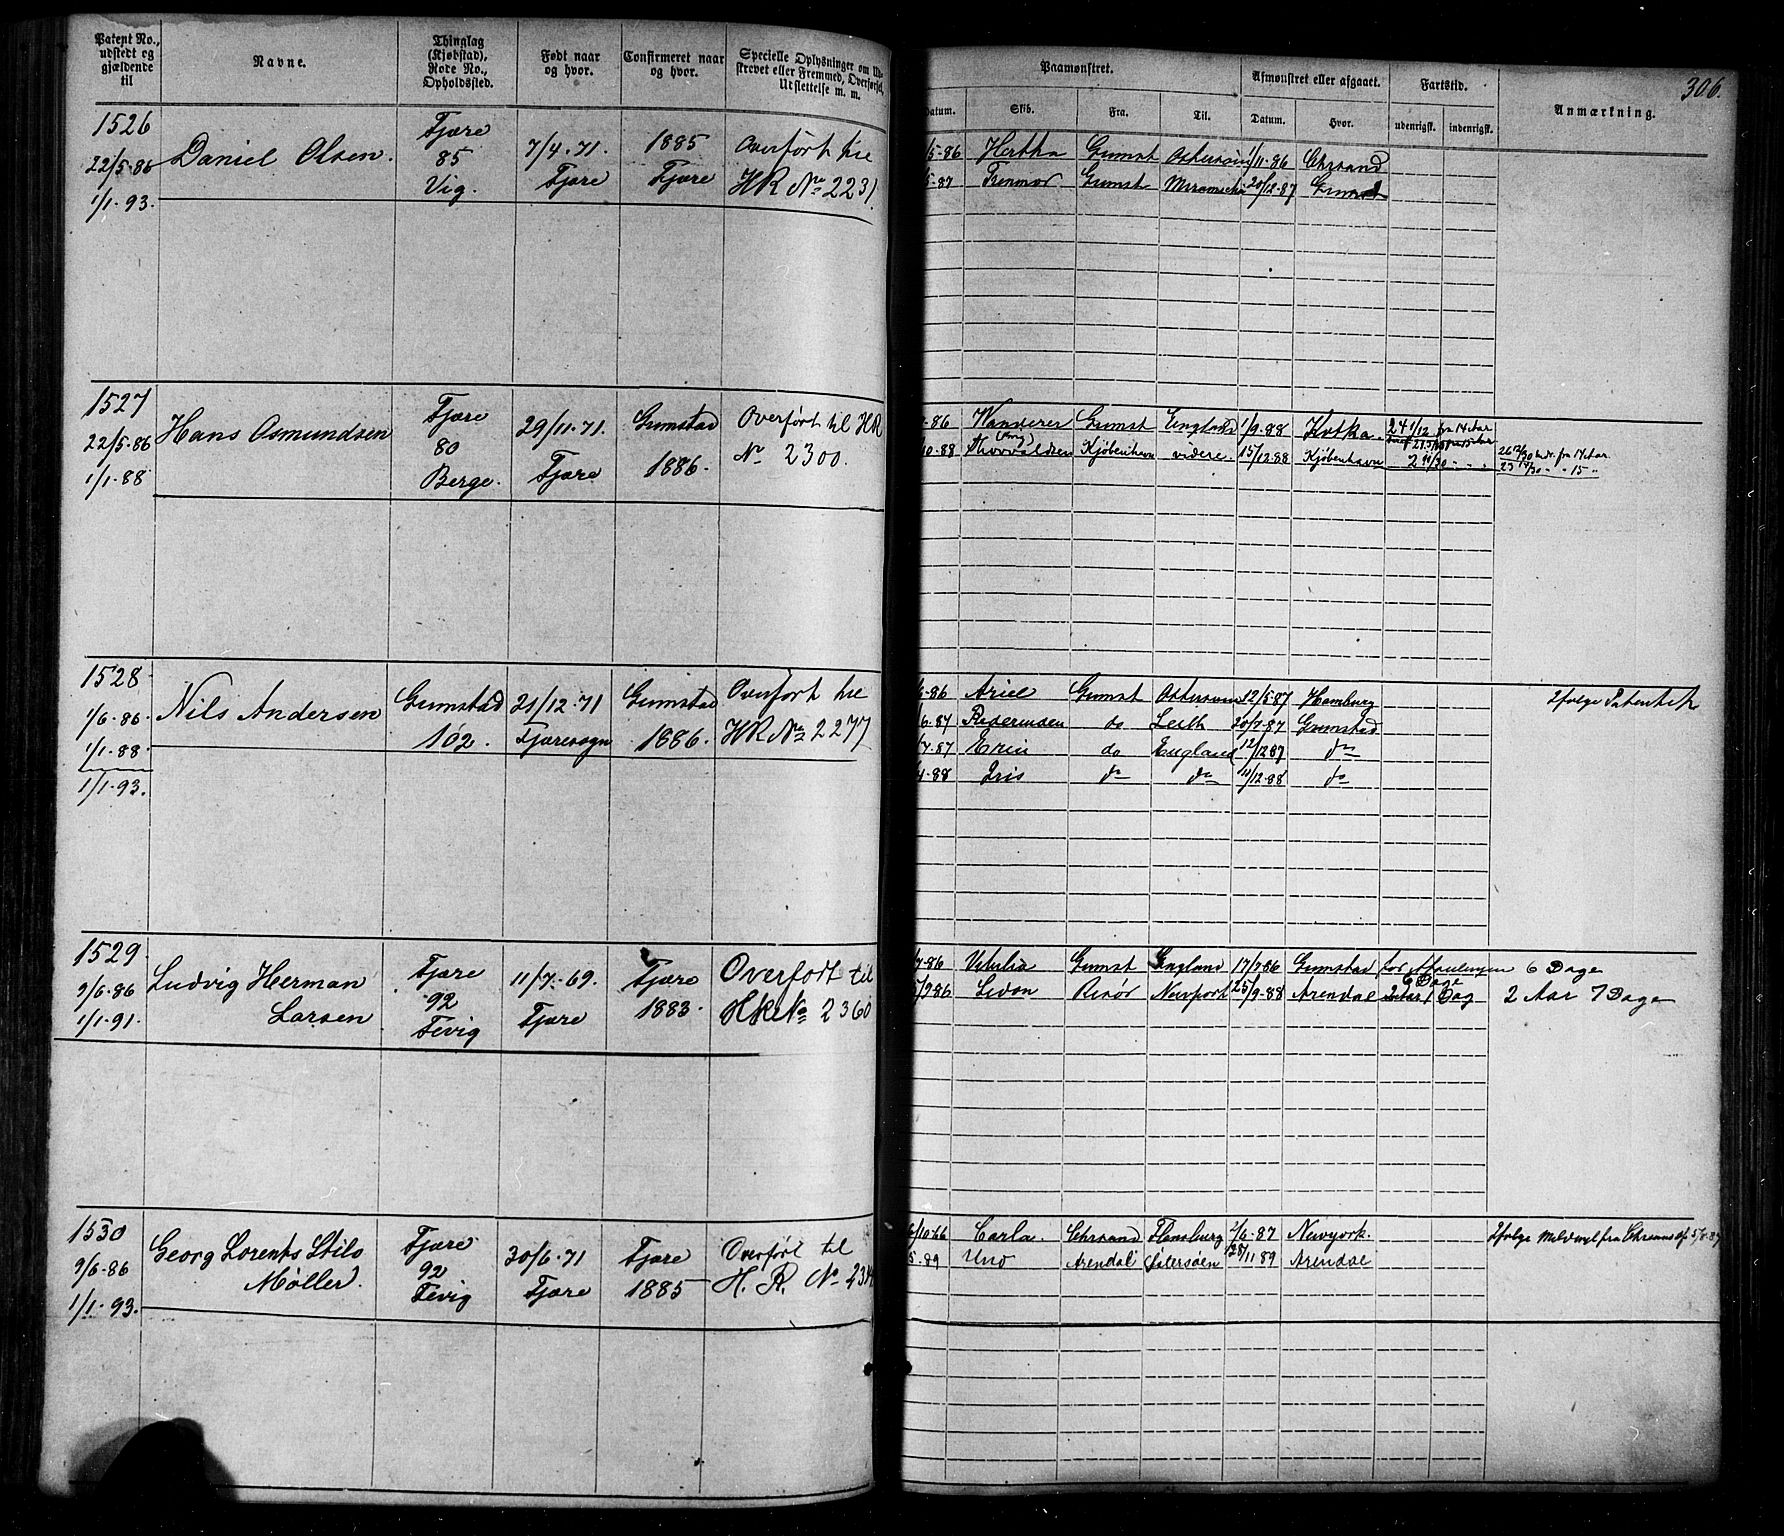 Patent No., udstedt og gjældende til
Navne.
Thinglag (Kjøbstad), Rode No., Opholdssted.
Født naar og hvor.
Confirmeret naar og hvor.
Specielle Oplysninger om Ud-
strevet eller Fremmed, Overførsel,
Udslettelse m. m.
Paamønstret.
Datum.
Skib.
Fra.
Til.
Afmønstret eller afgaaet.
Datum.
Hvor.
Fartstid.
udenrigsk.
indenrigsk.
Anmærkning.
306.
1526
22/5-86
1/1-93.
Daniel Olsen.
Fjære
85
Vig.
7/4-71.
Fjære
1885
Fjære
Overført til
HR No 2231.
5-86 Hertha Grimst Østersøen 1/11-86 Chrsand
5-87 Grimst 20/12-87 Grimst
1527
22/5-86
1/1-88
Hans Osmundsen
Fjære
80
Berge.
29/11-71.
Fjære
Grimstad
1886.
Overført til HR
No 2300.
-86 Wanderer Grimst England 1/9-88 Kotka. 24 1/12 fra 14 Aar
10-88 Thorvaldsen Kjøbenhavn videre. 15/12-88 Kjøbenhavn
1528
1/6-86.
1/1-88
1/1-93.
Nils Andersen
Grimstad
102.
21/12-71
Fjæresogn
Grimstad
1886.
Overført til
HR No 2277
6-86 Ariel Grimst Østersøen 12/5-87 Hamburg Ifølge Patentet
6-87 do Leith 20/7-87 Grimstad
7-87 Erin do England 12/12 87 do
4-88 Iris do do 11/12-88 do
1529
9/6-86
1/1-91.
Ludvig Herman
Larsen
Fjære
92
Fevig
11/7-69.
Fjære
Fjære
1883.
Overført til
HR No 2360
7-86 Grimst England 17/7 86 Grimstad 6 Dage
6 Dage
/9 86 Risør Newport 25/9-88 Arendal 2 Aar 1 Dag 2 Aar 7 Dage
1530
9/6-86
1/1-93.
Georg Lorents Stilo
Møller.
Fjære
92
Fevig
30/6-71
Fjære
Fjære
1885
Overført til
H. R. No
/10-86 Carla. Chrsand Flensburg 2/6-87 Newyork. Ifølge
5-89 Uno Arendal 28/11 89 Arendal